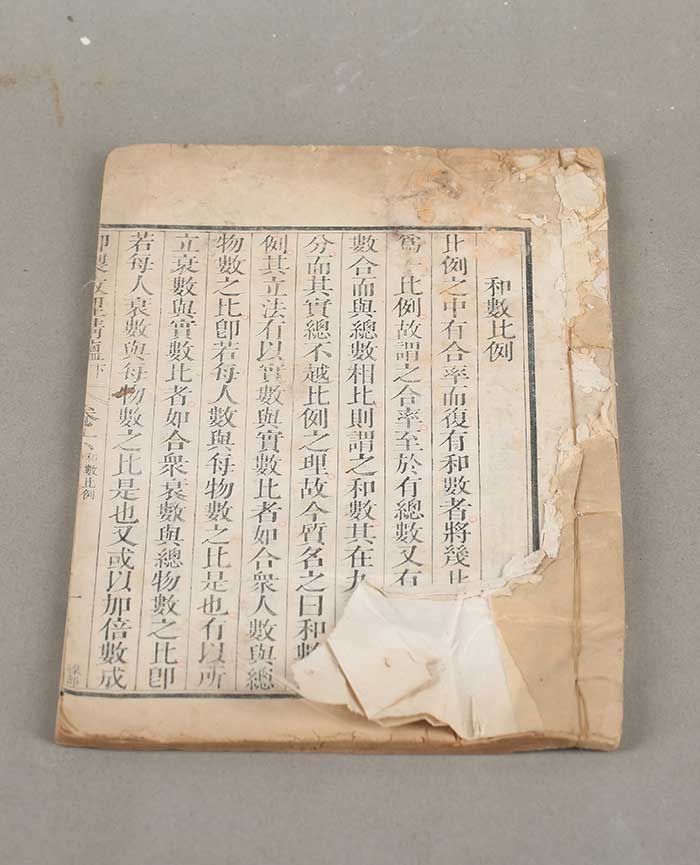 和數比例
比例之中有合率而復有和數者將幾比
爲一比例故謂之合率至於有總數又有
數合而與總數相比則謂之和數其在九
分而其實總不越比例之理故今質名之曰和數
例其立法有以實數與實數比者如合衆人數與總
物數之比卽若每人數與每物數之比是也有以所
立衰數與實數比者如合衆衰數與總物數之比卽
若每人衰數與每物數之比是也又或以加倍數成
數理精蘊下 卷 和數比例